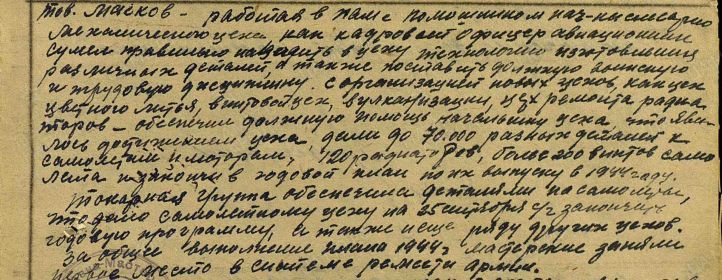 тов. Масков - работая в ПАМ-е помошником нач-ка слесарно
механического цеха, как кадровый офицер авиационник
сумел правильно наладить в цеху технологию изготовления
различных деталей, а также поставить должную воинскую
и трудовую дисциплину. С организацией новых цехов, как цех
цветного литья, винтовой цех, вулканизации, цех ремонта радиа
торов - обеспечил должную помощь начальнику цеха, что яви-
лось достижением цеха, дали до 70.000 разных деталей к
самолетам и моторам, 120 радиаторов, более 200 винтов само
лета и закончив годовой план по их выпуску в 1944 году.
Токарная группа обеспечила деталями на самолеты,
что дало самолетному цеху на 25 октября с/г закончить
годовую программу, а также и еще ряду других цехов.
За общее выполнение плана 1944г мастерские заняли
первое место в системе ремонта армии.